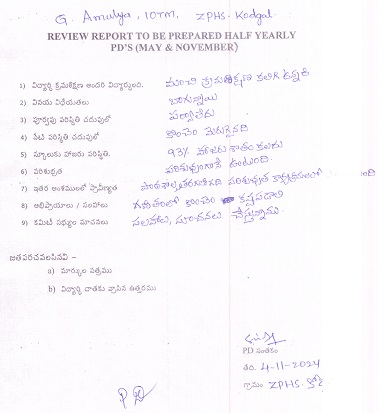 G. Amulya, 10TM, ZPHS- Kodgal
REVIEW REPORT TO BE PREPARED HALF YEARLY
PD'S (MAY & NOVEMBER)
1) విద్యార్థి క్రమశిక్షణ అందరి విద్యార్థులది. మంచి క్రమశిక్షణ కలిగి ఉన్నది
2) వినయ విధేయతలు బాగున్నాయి
3) పూర్వపు పరిస్థితి చదువులో పర్వాలేదు
4) నేటి పరిస్థితి చదువులో కొంచెం మెరుగైనది
5) స్కూలుకు హాజరు పరిస్థితి. 93% హాజరు శాతం కలదు
6) పరిశుభ్రత పరిశుభ్రంగానే ఉంటుంది.
7) ఇతర అంశములలో ప్రావీణ్యత పరిశుభ్రత
8) అభిప్రాయాలు / సలహాలు గణితంలో కొంచెం కష్టపడాలి
9) కమిటీ సభ్యుల సూచనలు సలహాలు, సూచనలు చేస్తున్నాము.
జతపరచవలసినవి :-
a) మార్కుల పత్రము
b) విద్యార్థి దాతకు వ్రాసిన ఉత్తరము
PD సంతకం
తేది. 4-11-2024
గ్రామం ZPHS-
PD